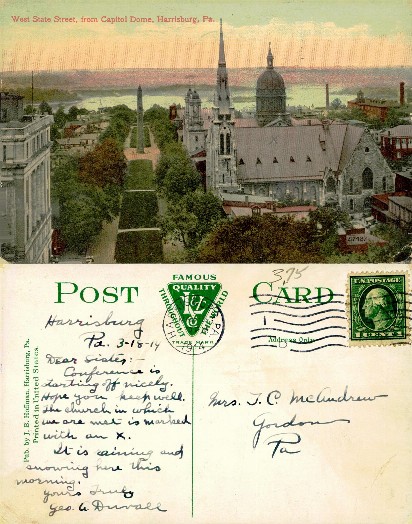 West State Street, from Capitol Dome, Harrisburg, Pa.
375
POST CARD
FAMOUS
QUALITY
THROUGHOUT THE WORLD
TRADE MARK
Address Only
U.S. POSTAGE
1 CENT 1
Harrisburg
Pa. 3-15-14
Dear Sister:-
Conference is
starting off nicely.
Hope you keep well.
The church in which
we are met is marked
with an X.
It is raining and
snowing here this
morning.
Yours Truly
Geo. A Duvall
Mrs. T. C. McAndrew
Gordon
Pa
Pub. by J. B. Hoffman, Harrisburg, Pa.
Printed in United States.